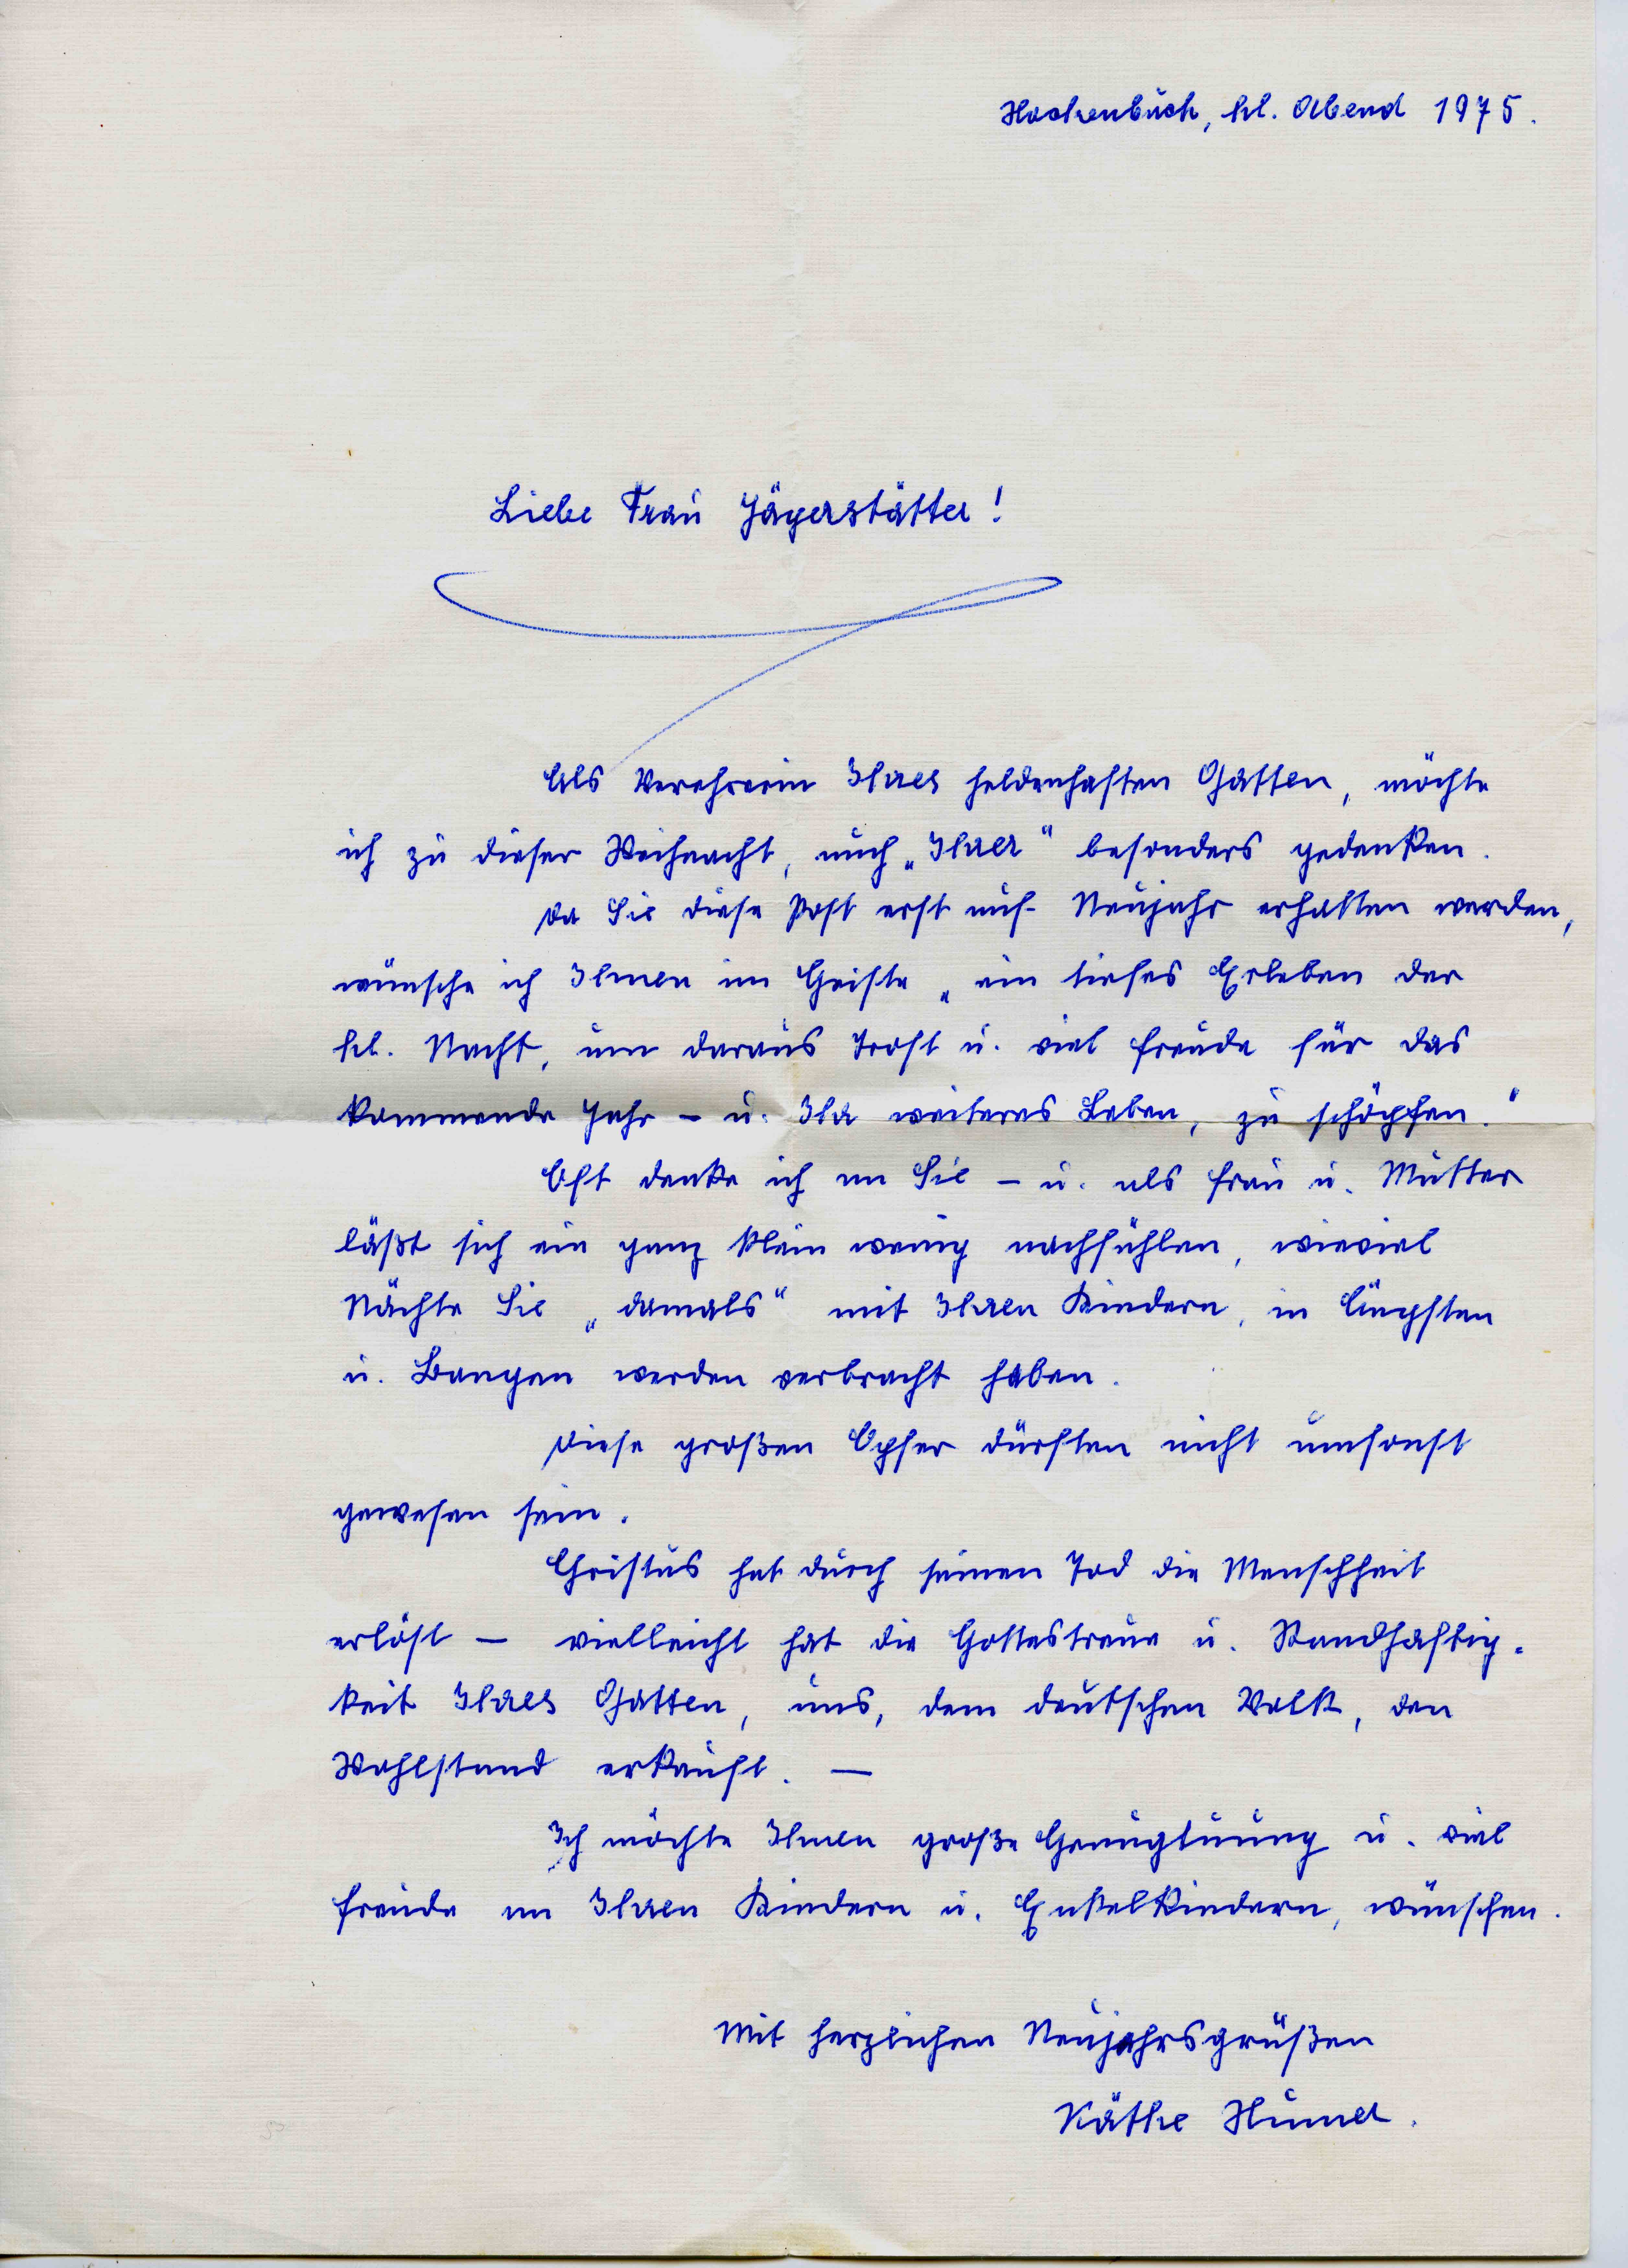 Hochenbuch, hl. Abend 1975.
Liebe Frau Jägerstätter!
Als Verehrerin Ihres heldenhaften Gatten, möchte
ich zu dieser Weihnacht, auch „Ihrer" besonders gedenken.
Da Sie diese Post erst auf Neujahr erhalten werden,
wünsche ich Ihnen im Geiste „ein tiefes Erleben der
hl. Nacht, um daraus Trost u. viel Freude für das
kommende Jahr – u. Ihr weiteres Leben, zu schöpfen."
Oft denke ich an Sie – u. als Frau u. Mutter
läßt sich ein ganz klein wenig nachfühlen, wieviel
Nächte Sie „damals" mit Ihren Kindern, in Ängsten
u. Bangen werden verbracht haben.
Diese großen Opfer dürften nicht umsonst
gewesen sein.
Christus hat durch seinen Tod die Menschheit
erlöst – vielleicht hat die Gottestreue u. Standhaftig-
keit Ihres Gatten, uns, dem deutschen Volk, den
Wohlstand erkauft. –
Ich möchte Ihnen große Genugtuung u. viel
Freude an Ihren Kindern u. Enkelkindern, wünschen.
Mit herzlichen Neujahrsgrüßen
Käthe Humer.